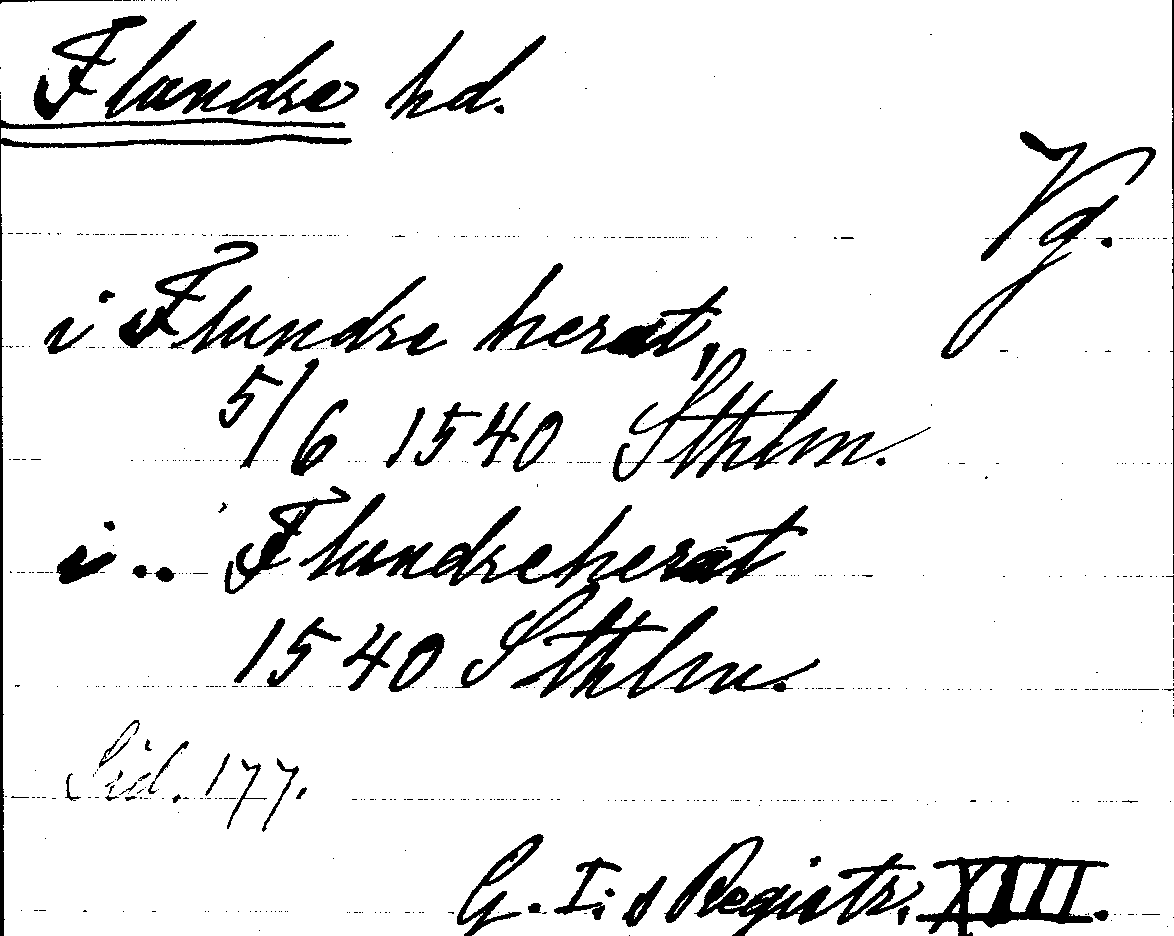 Flundre hd.
Vg.
i Flundre herat,
5/6 1540 Sthlm.
i .. Flundreherat
1540 Sthlm.
Sid. 177.
G. I:s Registr. XIII.